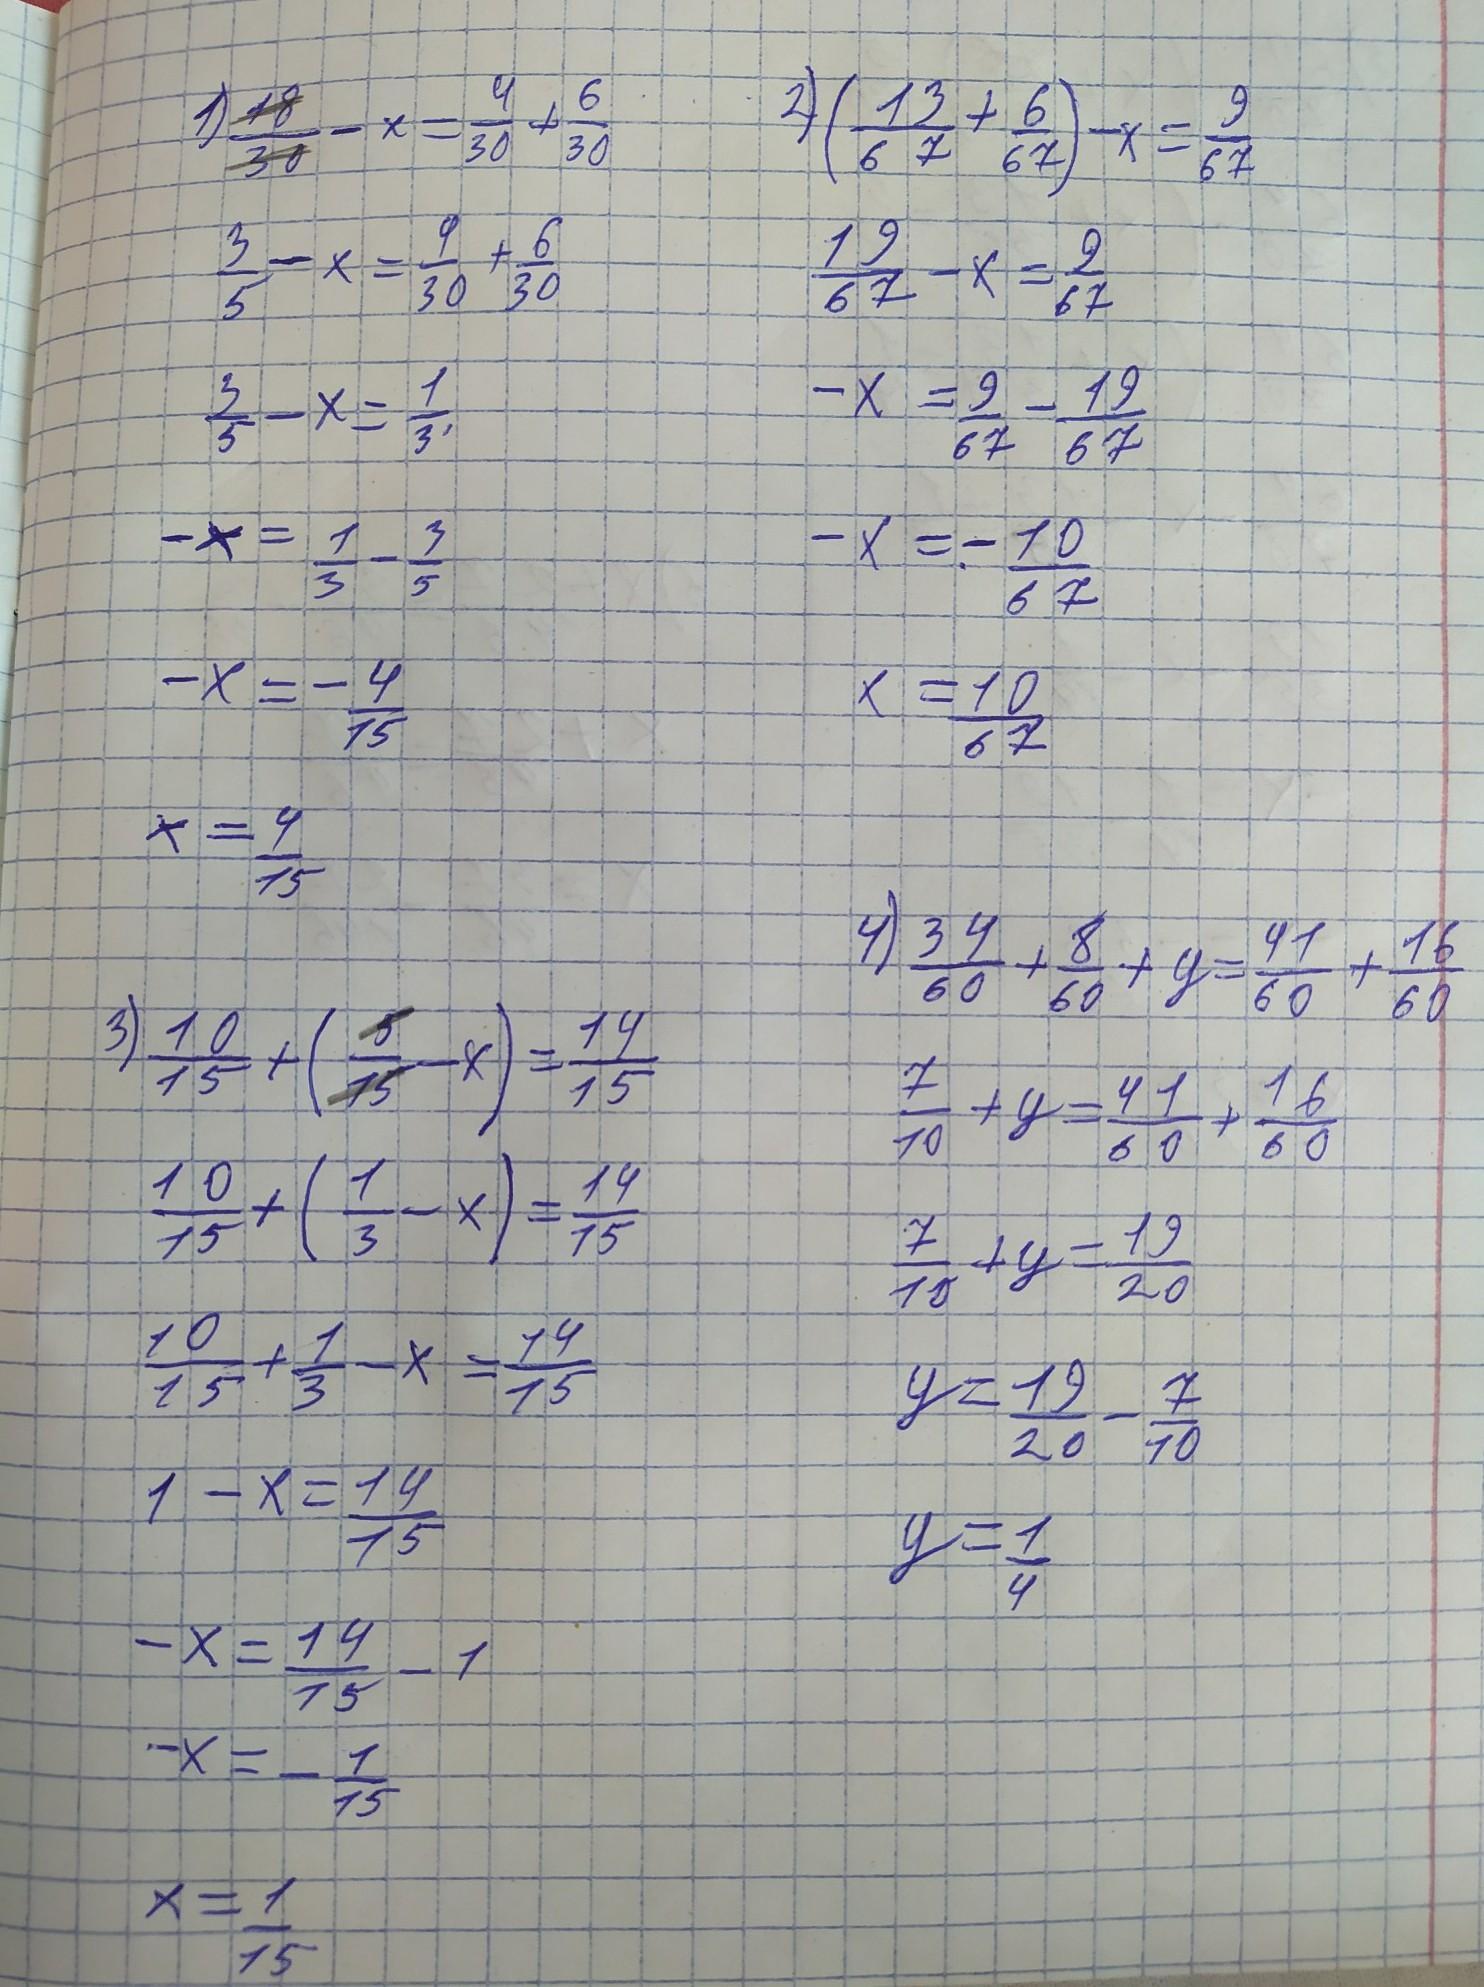 1) 18/30 - x = 4/30 + 6/30
3/5 - x = 4/30 + 6/30
3/5 - x = 1/3
-x = 1/3 - 3/5
-x = -4/15
x = 4/15
2) (13/67 + 6/67) - x = 9/67
19/67 - x = 9/67
-x = 9/67 - 19/67
-x = -10/67
x = 10/67
3) 10/15 + (5/15 - x) = 14/15
10/15 + (1/3 - x) = 14/15
10/15 + 1/3 - x = 14/15
1 - x = 14/15
-x = 14/15 - 1
-x = -1/15
x = 1/15
4) 34/60 + 8/60 + y = 41/60 + 16/60
7/10 + y = 41/60 + 16/60
7/10 + y = 19/20
y = 19/20 - 7/10
y = 1/4